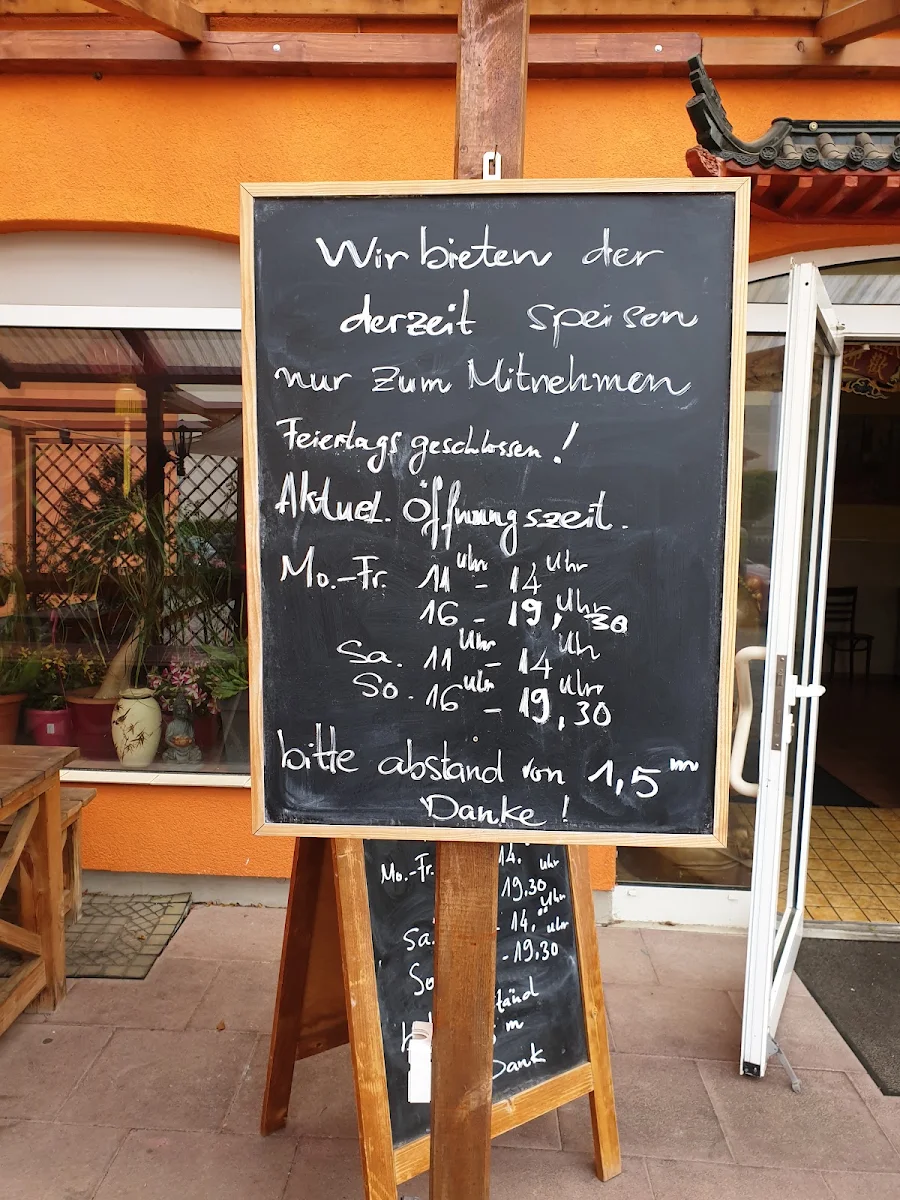 Wir bieten der
derzeit speisen
nur zum Mitnehmen
Feiertags geschlossen!
Aktuel. Öffnungszeit.
Mo.-Fr. 11 Uhr - 14 Uhr
16 - 19,30 Uhr
Sa. 11 Uhr - 14 Uh
So. 16 Uhr - 19,30 Uhr
bitte abstand von 1,5 m
Danke!
Mo.-Fr. 14. Uhr
19.30 Uhr
Sa. - 14. Uhr
So - 19.30
m
Dank